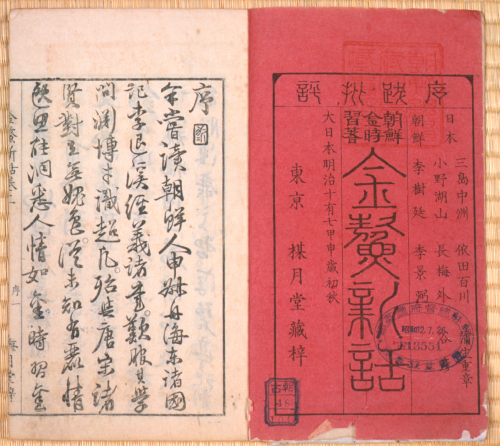 序跋批評
日本 三島中洲 依田百川
小野湖山 長梅外 蒲生重章
朝鮮 李樹廷 李景弼
朝鮮
金時習著
金鰲新話
大日本明治十有七甲申歳初秋
東京 楳月堂藏梓
13551
序
余嘗讀朝鮮人申叔舟海東諸國
記李退溪經義諸書歎服其學
問淵博才識超凡殆與唐宋諸
賢對立無媿色從未知有麗情
艷思洞悉人情如金時習金